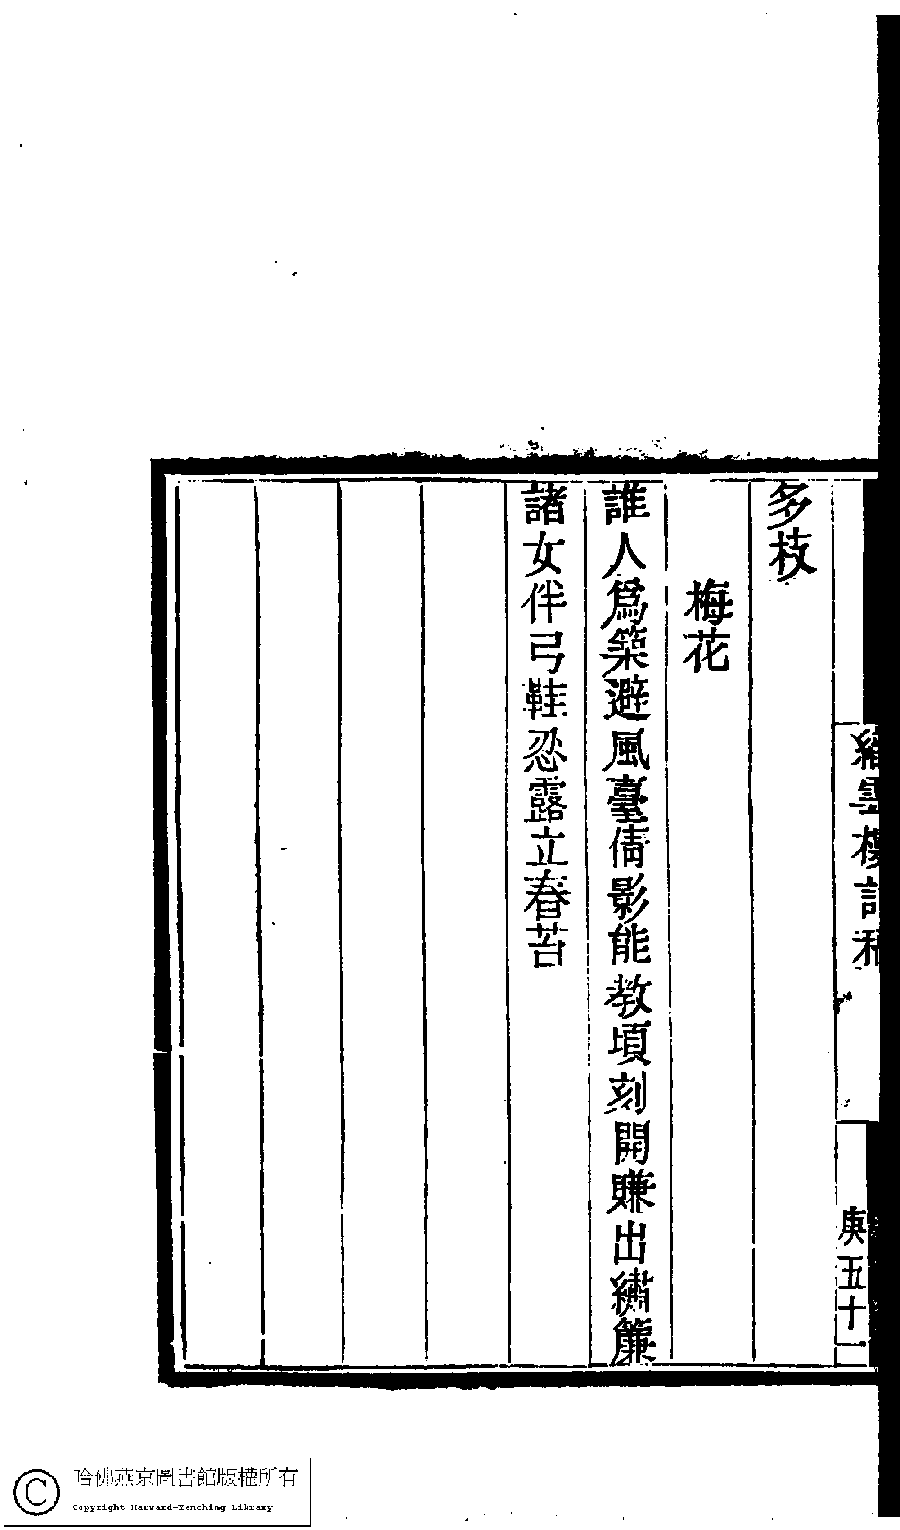 多枝
梅花
誰人爲築避風臺倩影能教頃刻開賺出繡簾
諸女伴弓鞋忍露立春苔
繡雲樓詩稿
庚五十一
哈佛燕京圖書館版權所有
Copyright Harvard-Yenching Library